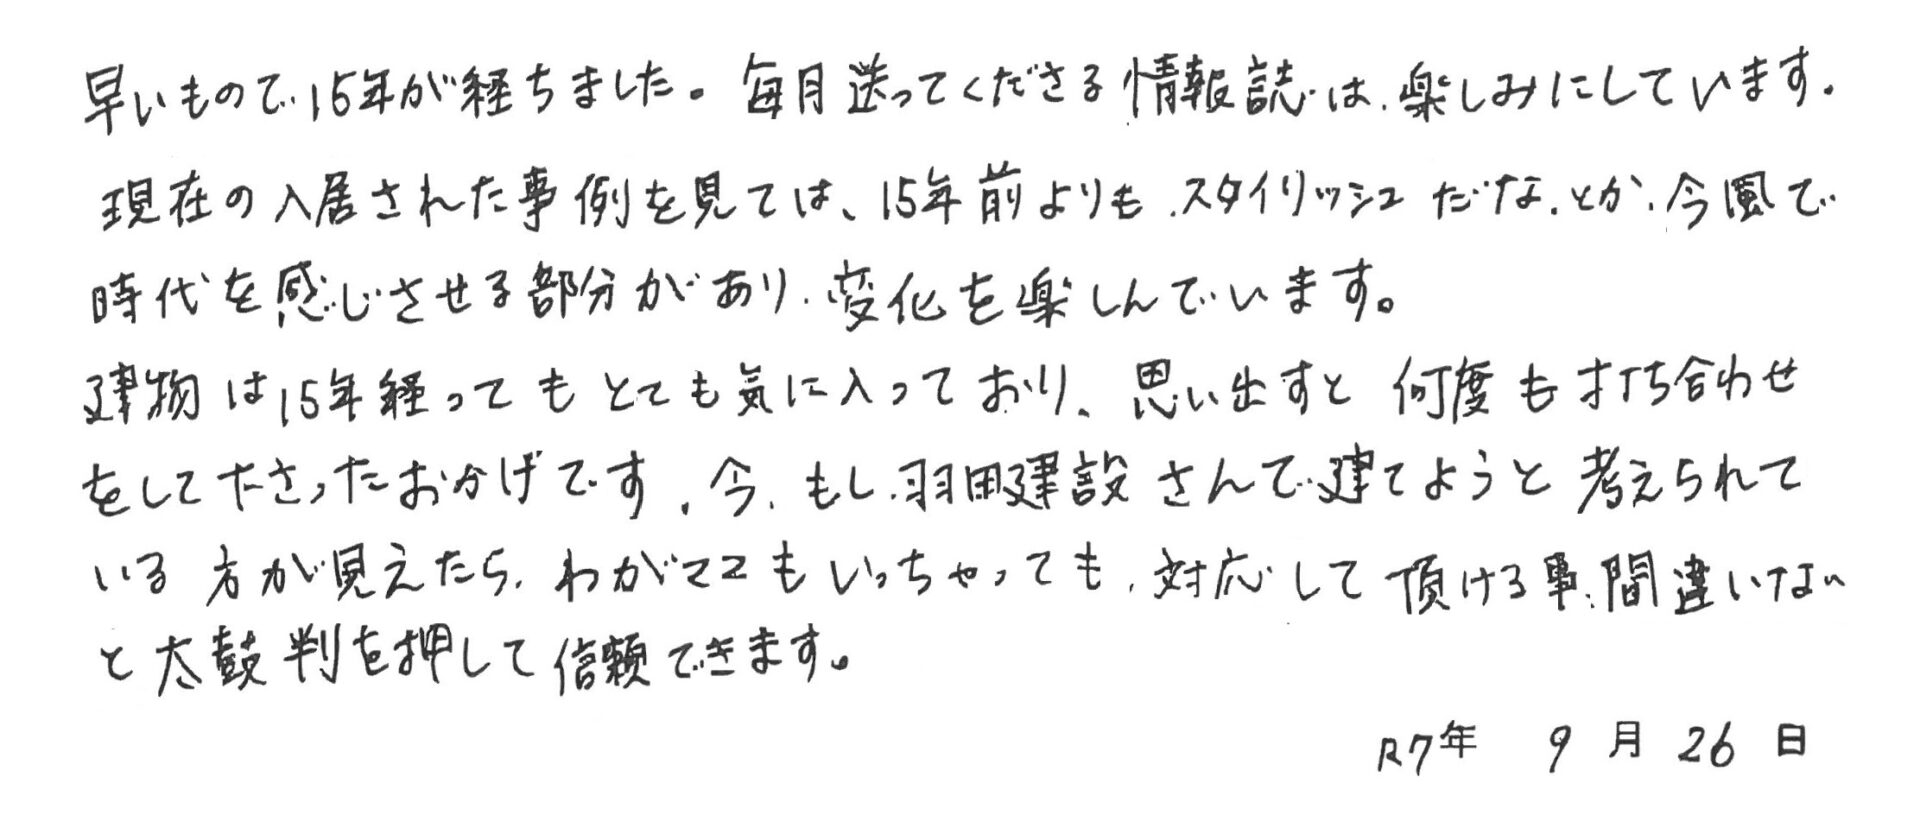 早いもので、15年が経ちました。毎月送ってくださる情報誌は、楽しみにしています。
現在の入居された事例を見ては、15年前よりも、スタイリッシュだな、とか、今風で
時代を感じさせる部分があり、変化を楽しんでいます。
建物は15年経ってもとても気に入っており、思い出すと何度も打ち合わせ
をして下さったおかげです。今、もし、羽田建設さんで建てようと考えられて
いる方が見えたら、わがママもいっちゃっても、対応して頂ける事、間違いない
と太鼓判を押して信頼できます。
R7年 9月 26日